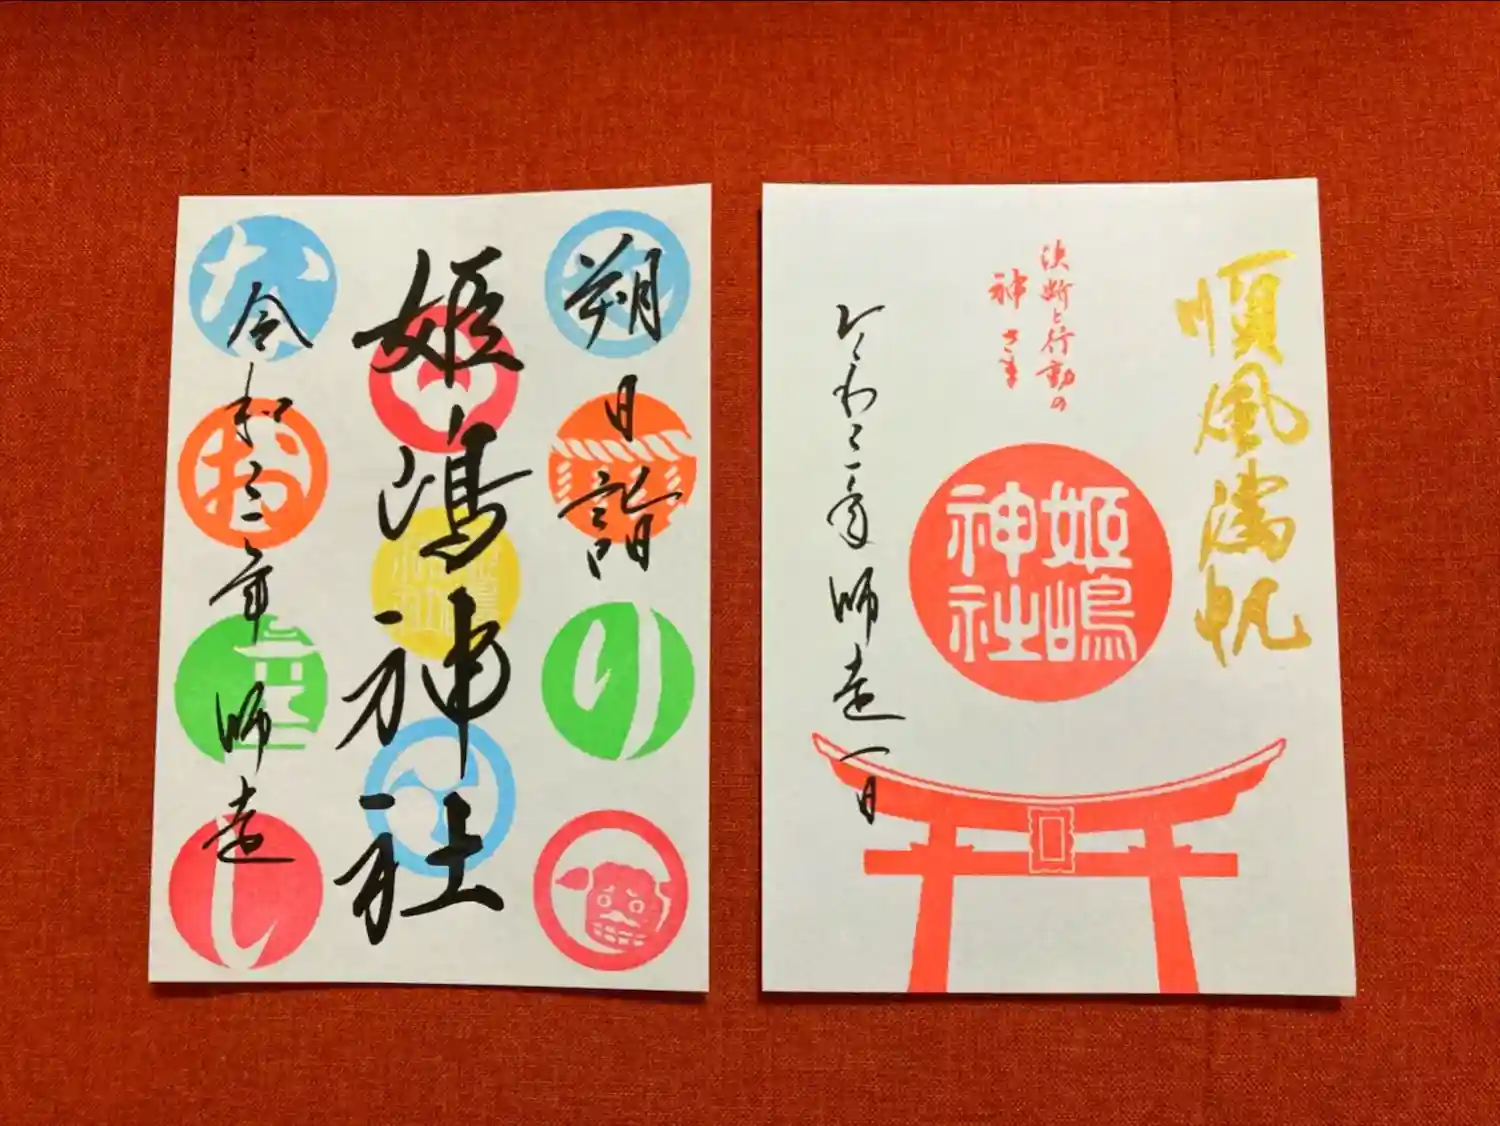 朔日詣
り
姫嶋神社
な
お
し
令和三年師走
順風満帆
決断と行動の
神さま
姫嶋
神社
令和三年師走一日